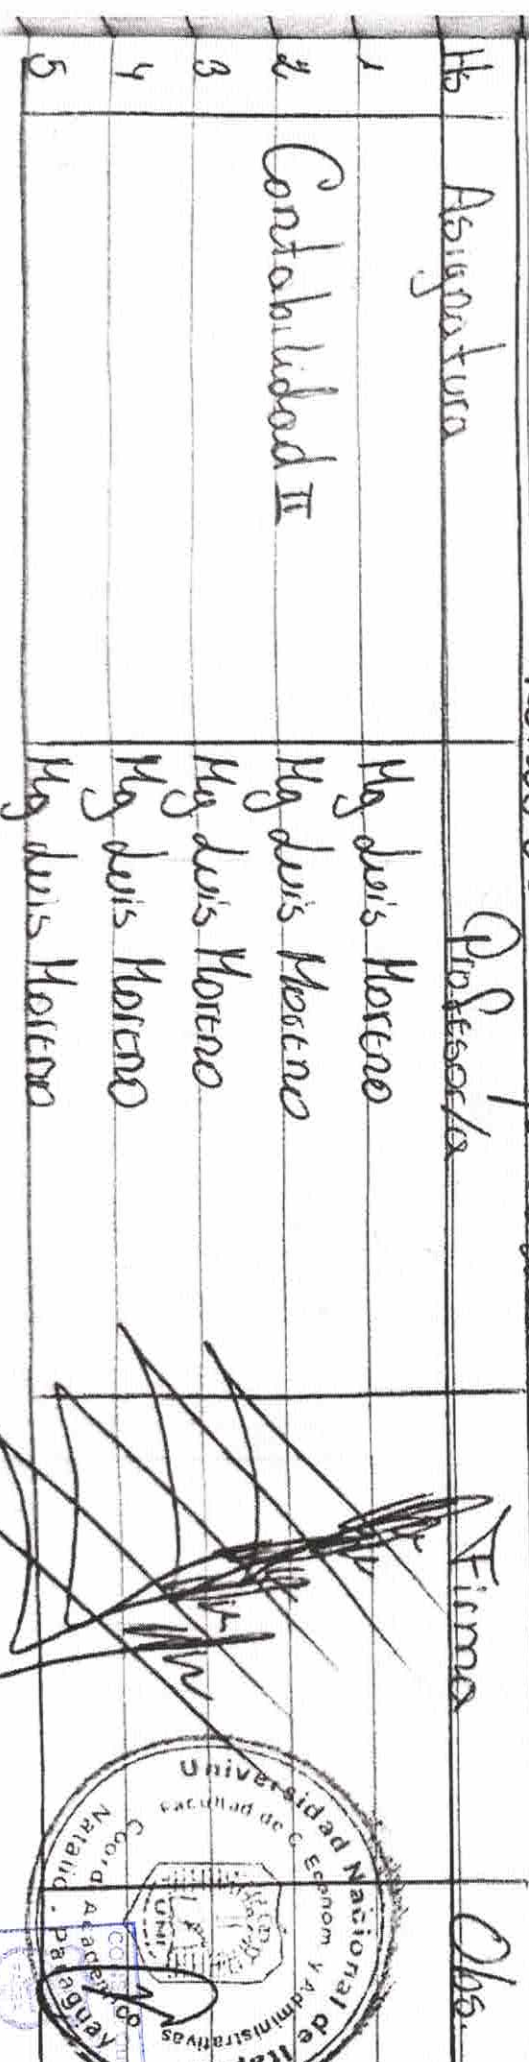 Hs Asignatura Profesor/a Firma Obs.
1 Mg Luis Moreno
2 Contabilidad II Mg Luis Moreno
3 Mg Luis Moreno
4 Mg Luis Moreno
5 Mg Luis Moreno
Universidad Nacional de
Facultad de C. Econom y Administrativas
UNI
Coord Academico
Natalio - Paraguay